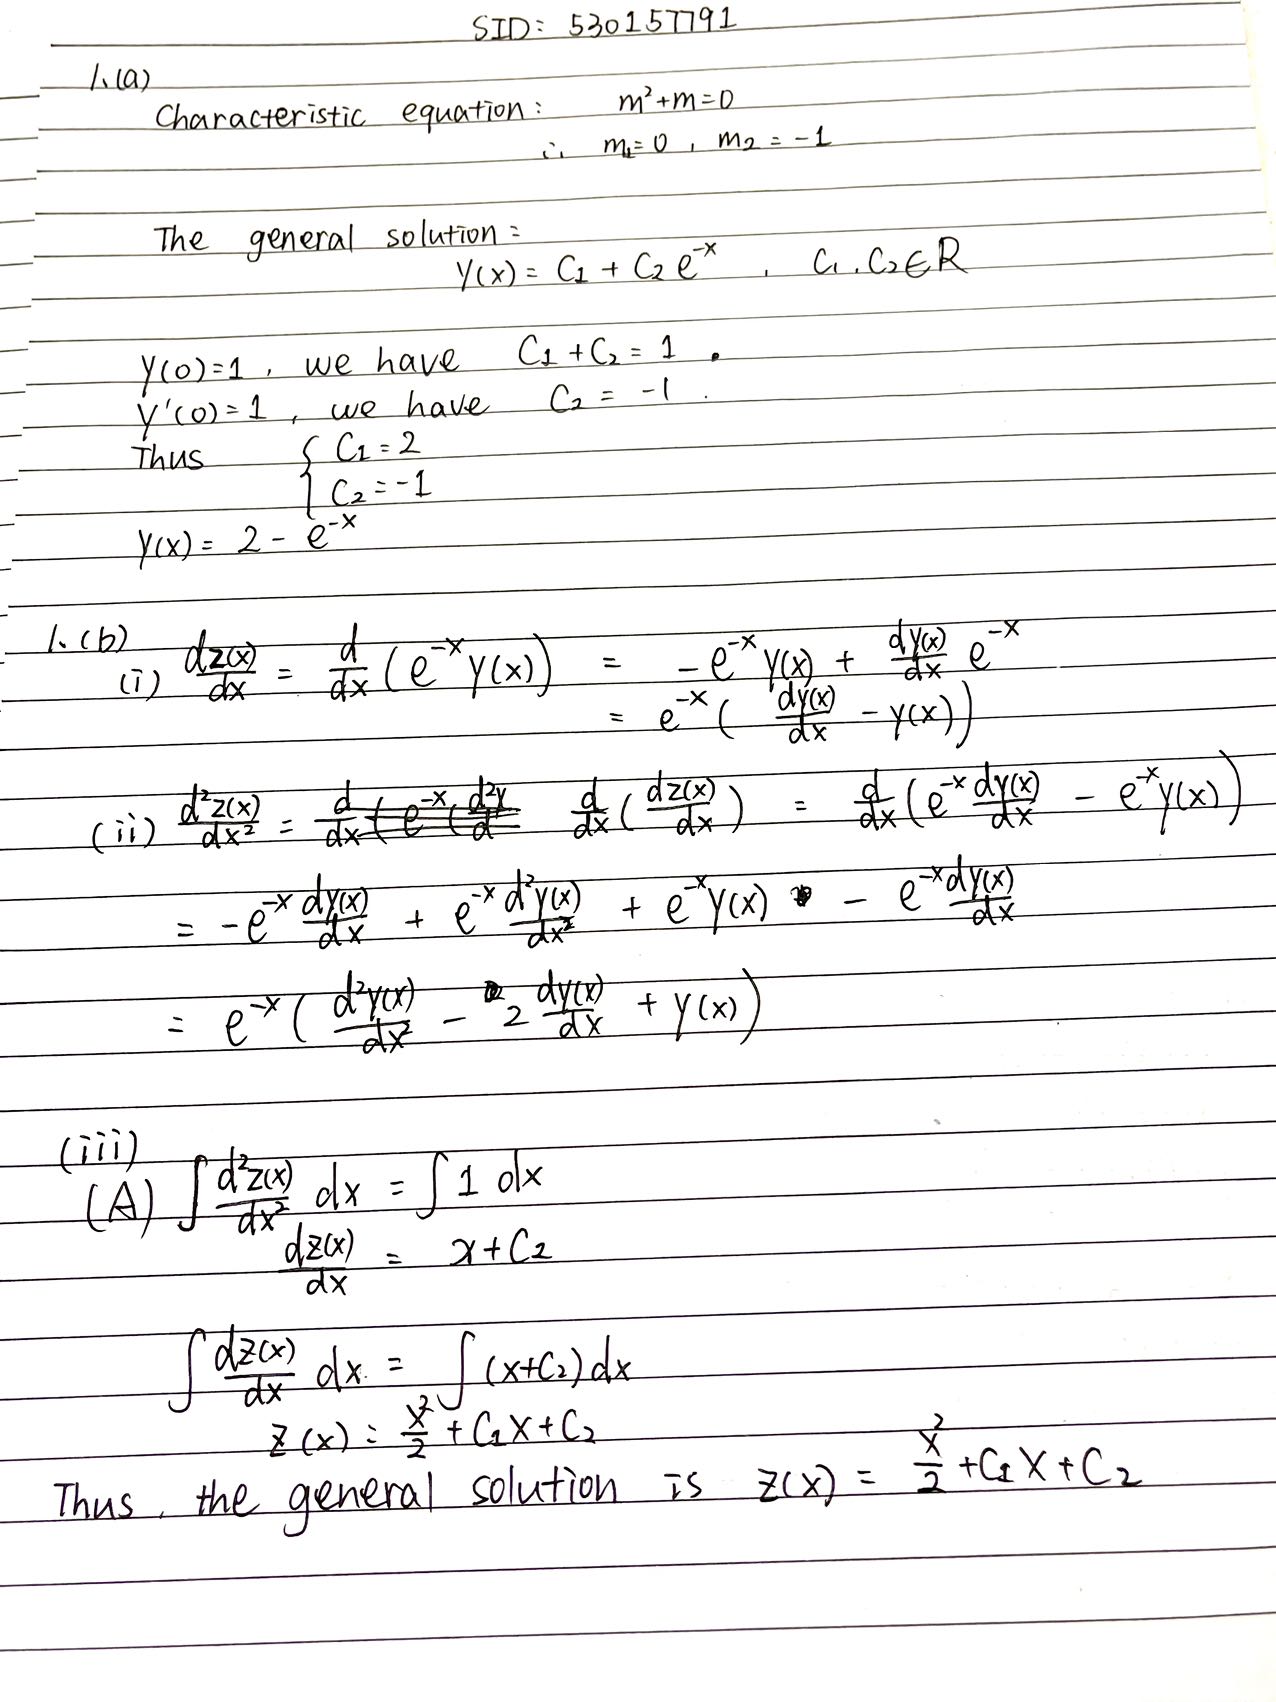 SID: 530157791
1.(a)
Characteristic equation: m²+m=0
∴ m₁=0, m₂=-1
The general solution:
y(x) = C₁ + C₂e⁻ˣ, C₁, C₂∈R
y(0)=1, we have C₁+C₂=1.
y'(0)=1, we have C₂=-1.
Thus { C₁=2
C₂=-1
y(x) = 2 - e⁻ˣ
1.(b)
(i) dz(x)/dx = d/dx (e⁻ˣ y(x)) = -e⁻ˣ y(x) + dy(x)/dx e⁻ˣ
= e⁻ˣ ( dy(x)/dx - y(x))
(ii) d²z(x)/dx² = d/dx (dz(x)/dx) = d/dx (e⁻ˣ dy(x)/dx - e⁻ˣ y(x))
= -e⁻ˣ dy(x)/dx + e⁻ˣ d²y(x)/dx² + e⁻ˣ y(x) - e⁻ˣ dy(x)/dx
= e⁻ˣ ( d²y(x)/dx² - 2 dy(x)/dx + y(x))
(iii)
(A) ∫ d²z(x)/dx² dx = ∫ 1 dx
dz(x)/dx = x+C₂
∫ dz(x)/dx dx = ∫ (x+C₂) dx
z(x) = x²/2 + C₁x + C₂
Thus, the general solution is z(x) = x²/2 + C₁x + C₂